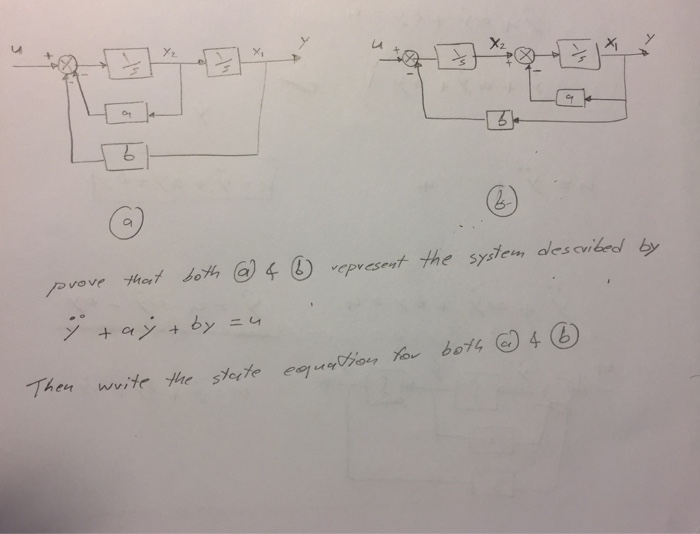 u + - - 1/s x₂ 1/s x₁ y
a
b
u + - 1/s x₂ + - 1/s x₁ y
a
b
(a)
(b)
prove that both (a) & (b) represent the system described by
ÿ + aẏ + by = u
Then write the state equation for both (a) & (b)